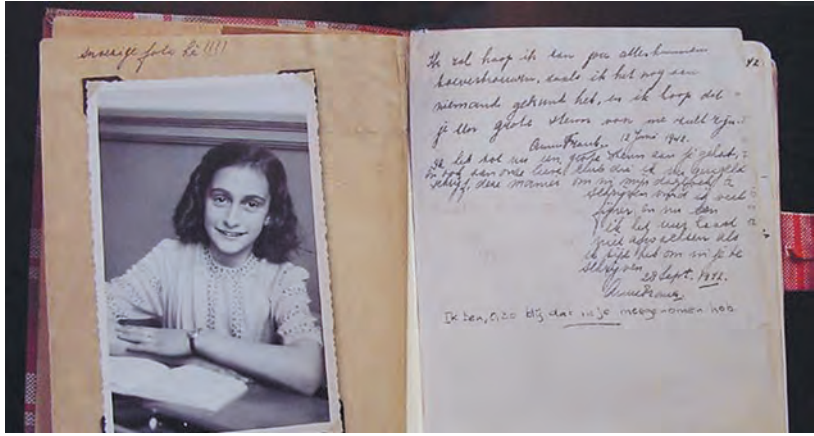 snoezige foto hè !!!!
Ik zal hoop ik aan jou alles kunnen
toevertrouwen, zoals ik het nog aan
niemand gekund heb, en ik hoop dat
je een grote steun voor me zult zijn.
Anne Frank. 12 Juni 1942.
Ik heb tot nu een grote steun aan je gehad,
en ook aan onze lieve club die ik nu geregeld
schrijf, deze manier om in mijn dagboek te
schrijven vind ik veel
fijner en nu kan
ik het uur haast
niet afwachten als
ik tijd heb om in je te
schrijven
28 Sept. 1942.
Anne Frank.
Ik ben, O, zo blij dat ik je meegenomen heb
42